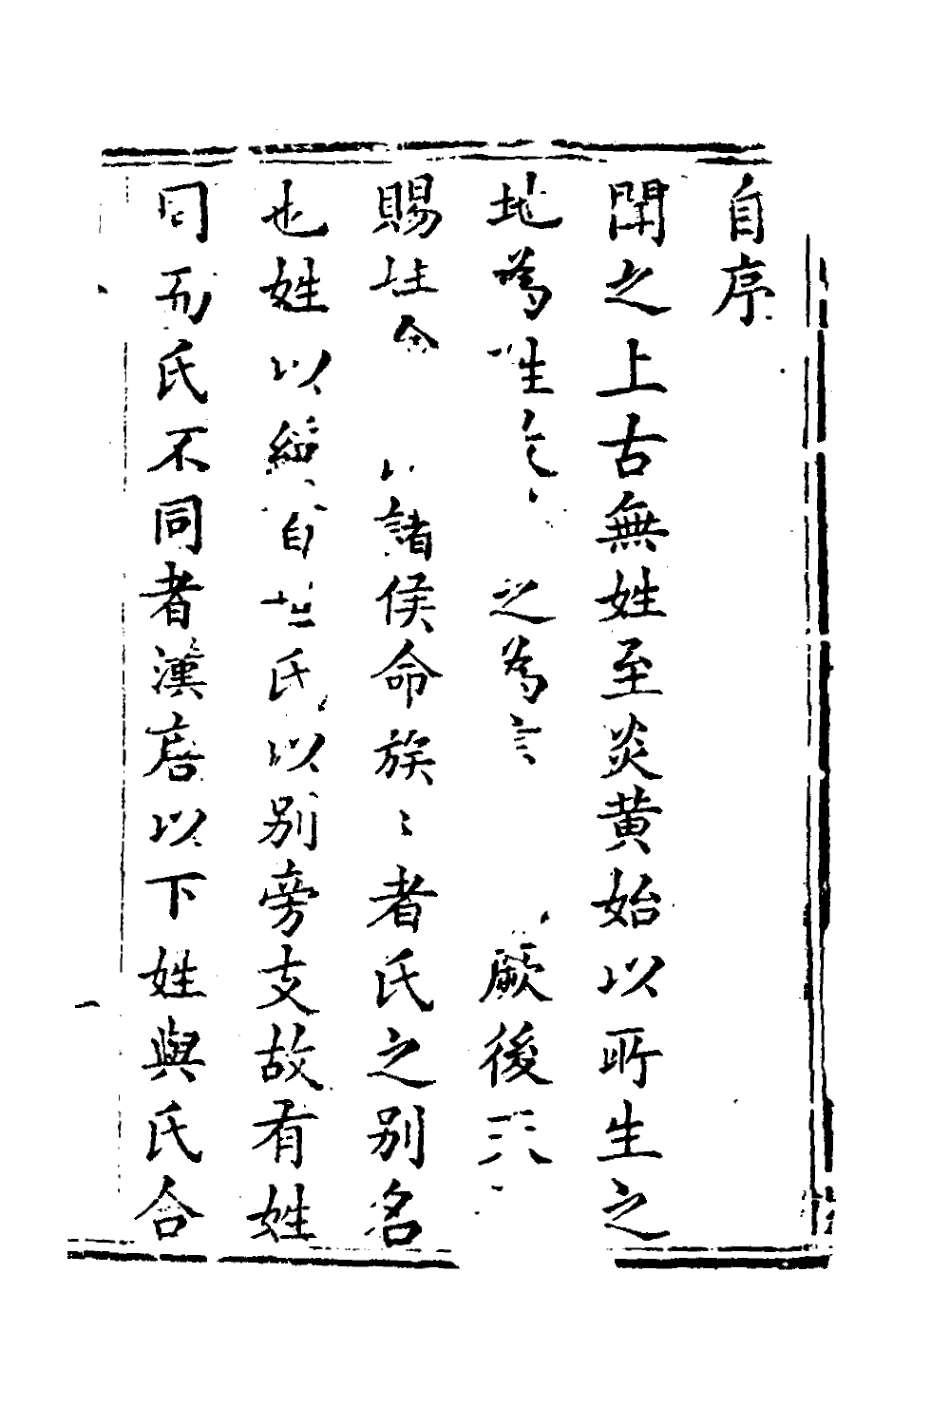 自序
聞之上古無姓至炎黃始以所生之
地為姓之為言厥後
賜姓命諸侯命族〻者氏之別名
也姓以氏以別旁支故有姓
同而氏不同者漢唐以下姓與氏合